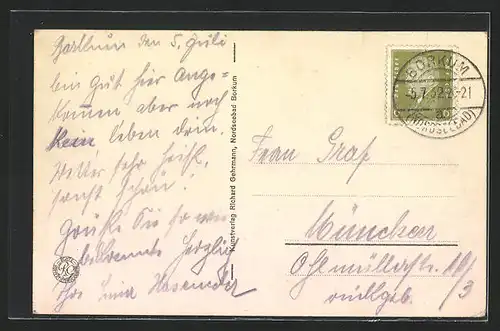 Borkum den 5. Juli
bin gut hier ange-
kommen aber noch
kein leben drin.
Wetter sehr frisch,
sonst schön!
Grüße Sie so wie
bekannte herzlich
Ihre
Kunstverlag Richard Gehrmann, Nordseebad Borkum
BORKUM
5.7.32.20-21
(NORDSEEBAD)
Frau Graf
München
Ohlmüllerstr.
rückgeb.